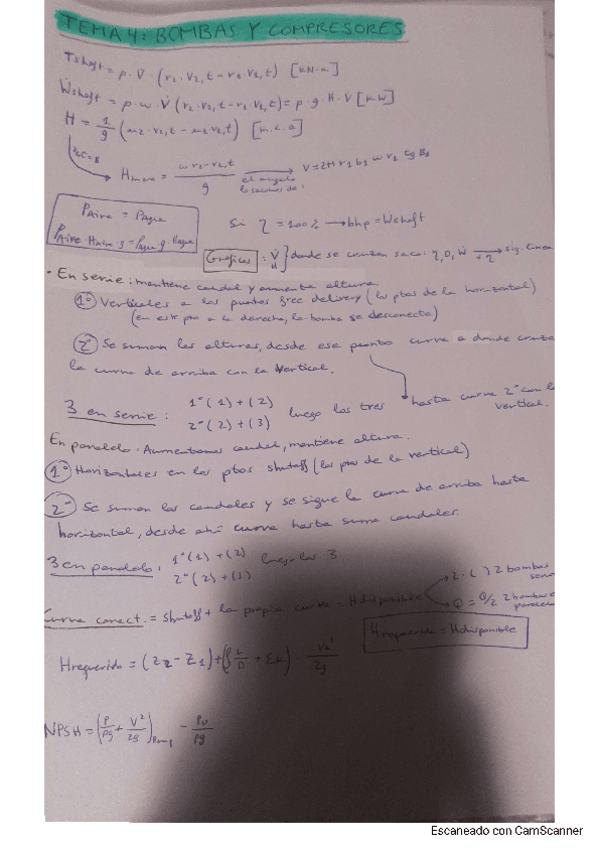 TEMA 4: BOMBAS Y COMPRESORES
Tshaft = ρ · V̇ · (r2 · V2,t - r1 V1,t) [kN·m]
Ẇshaft = ρ · w · V̇ (r2 · V2,t - r1 · V1,t) = ρ · g · H · V̇ [kW]
H = 1/g (u2 · V2,t - u1 V1,t) [m.c.a]
H = w r2 - V2,t / g
V̇ = 2π r1 b1 w r1 tg β1
el ángulo
lo sacamos de:
PAire = PAgua
PAire · Haire · g = PAgua · g · Hagua
Si η = 100% → bhp = Ẇshaft
Gráficas : V̇ H } donde se cruzan saco: η, D, Ẇ → sig. linea
· En serie: mantiene caudal y aumenta altura
1º Verticales a los puntos free delivery (los ptos de la horizontal)
(en este pto a la derecha, la bomba se desconecta)
2º Se suman las alturas, desde ese punto curva a donde cruza
la curva de arriba con la vertical.
3 en serie: 1º (1) + (2) 2º (2) + (3) luego los tres hasta curva 2º con la vertical.
En paralelo: Aumentamos caudal, mantiene altura.
1º Horizontales en los ptos shutoff (los ptos de la vertical)
2º Se suman los caudales y se sigue la curva de arriba hasta
horizontal, desde ahí curva hasta suma caudales.
3 en paralelo: 1º (1) + (2) 2º (2) + (3) luego los 3
Curva caract. = Shutoff + la propia curva = Hdisponible
2 · ( ) 2 bombas serie
Q = Q/2 2 bombas paralelo
Hrequerido = Hdisponible
Hrequerido = (Z2 - Z1) + (f L/D + ΣK) · V²/2g
NPSH = (P/ρg + V²/2g)Bomp - Pv/ρg
Escaneado con CamScanner